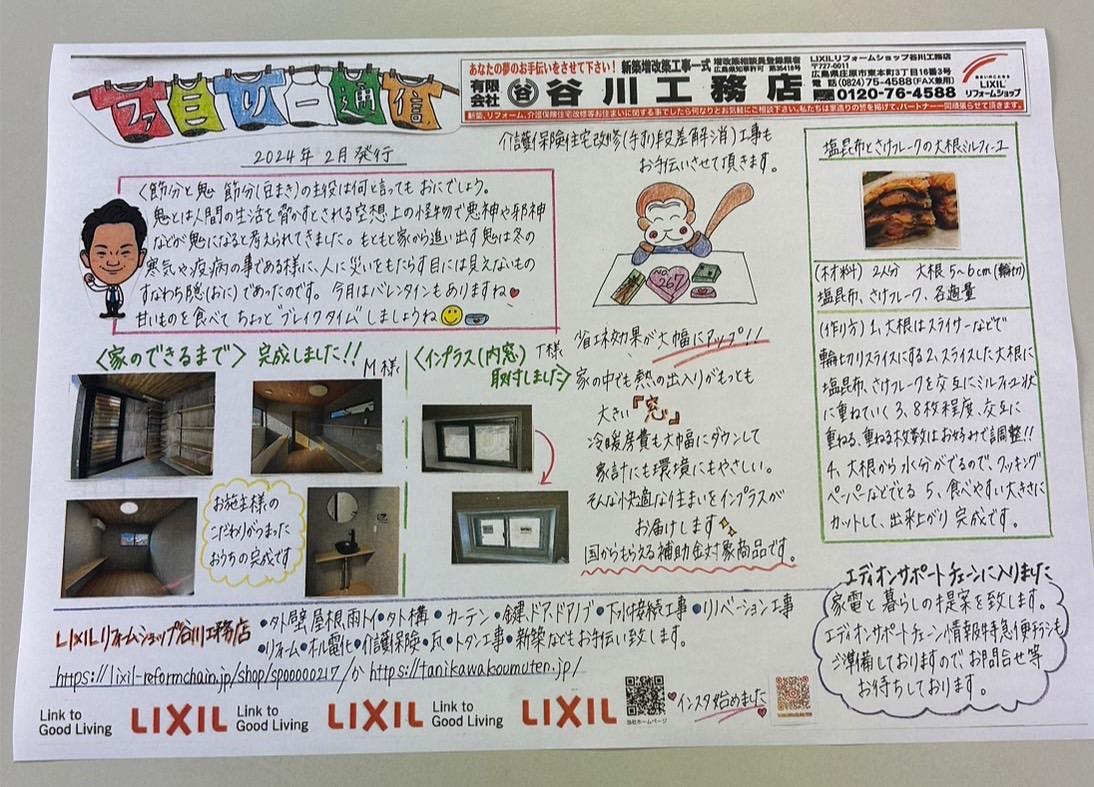 ファミリー通信
2024年 2月 発行
あなたの夢のお手伝いをさせて下さい!
新築増改築工事一式
増改築相談員登録業者
有限会社 谷 谷川工務店
LIXILリフォームショップ谷川工務店
〒727-0011
広島県庄原市東本町3丁目16番3号
電話(0824)75-4588(FAX兼用)
0120-76-4588
LIXIL
リフォームショップ
新築、リフォーム、介護保険住宅改修等お住まいに関する事でしたら何なりとお気軽にご相談下さい。私たちは家造りの誉を掲げて、パートナー一同頑張らせて頂きます。
〈節分と鬼 節分(豆まき)の主役は何と言っても おにでしょう。
鬼とは人間の生活を脅かすとされる空想上の怪物で悪神や邪神
などが鬼になると考えられてきました。もともと家から追い出す鬼は冬の
寒気や疫病の事である様に、人に災いをもたらす目には見えないもの
すなわち隠(おに)であったのです。 今月はバレンタインもありますね
甘いものを食べて ちょっと ブレイクタイム しましょうね
介護保険住宅改修(手すり段差解消)工事も
お手伝いさせて頂きます。
NO.267
塩昆布とさけフレークの大根ミルフィーユ
(材料) 2人分 大根 5~6cm(輪切)
塩昆布、さけフレーク、各適量
(作り方) 1、大根はスライサーなどで
輪切りスライスにする 2、スライスした大根に
塩昆布、さけフレークを交互にミルフィーユ状
に重ねていく 3、8枚程度、交互に
重ねる、重ねる枚数はお好みで調整!!
4、大根から水分がでるので、クッキング
ペーパーなどでとる 5、食べやすい大きさに
カットして、出来上がり 完成です。
〈家のできるまで〉 完成しました!! M様
お施主様の
こだわりがつまった
おうちの完成です
〈インプラス(内窓) T様
取付しました〉
省エネ効果が大幅にアップ!!
家の中でも熱の出入りがもっとも
大きい「窓」
冷暖房費も大幅にダウンして
家計にも環境にもやさしい。
そんな快適な住まいをインプラスが
お届けします
国からもらえる補助金対象商品です。
エディオンサポートチェーンに入りました
家電と暮らしの提案を致します。
エディオンサポートチェーン情報特急便チラシも
ご準備しておりますので、お問合せ等
お待ちしております。
LIXILリフォームショップ谷川工務店
・外壁屋根雨トイ・外構・カーテン・鍵ドア、ドアノブ・下水接続工事・リノベーション工事
・リフォーム・オール電化・介護保険・瓦・トタン工事・新築などもお手伝い致します。
https://lixil-reformchain.jp/shop/sp00000217/か https://tanikawakoumuten.jp/
Link to Good Living LIXIL Link to Good Living LIXIL Link to Good Living LIXIL
当社ホームページ
インスタ始めました